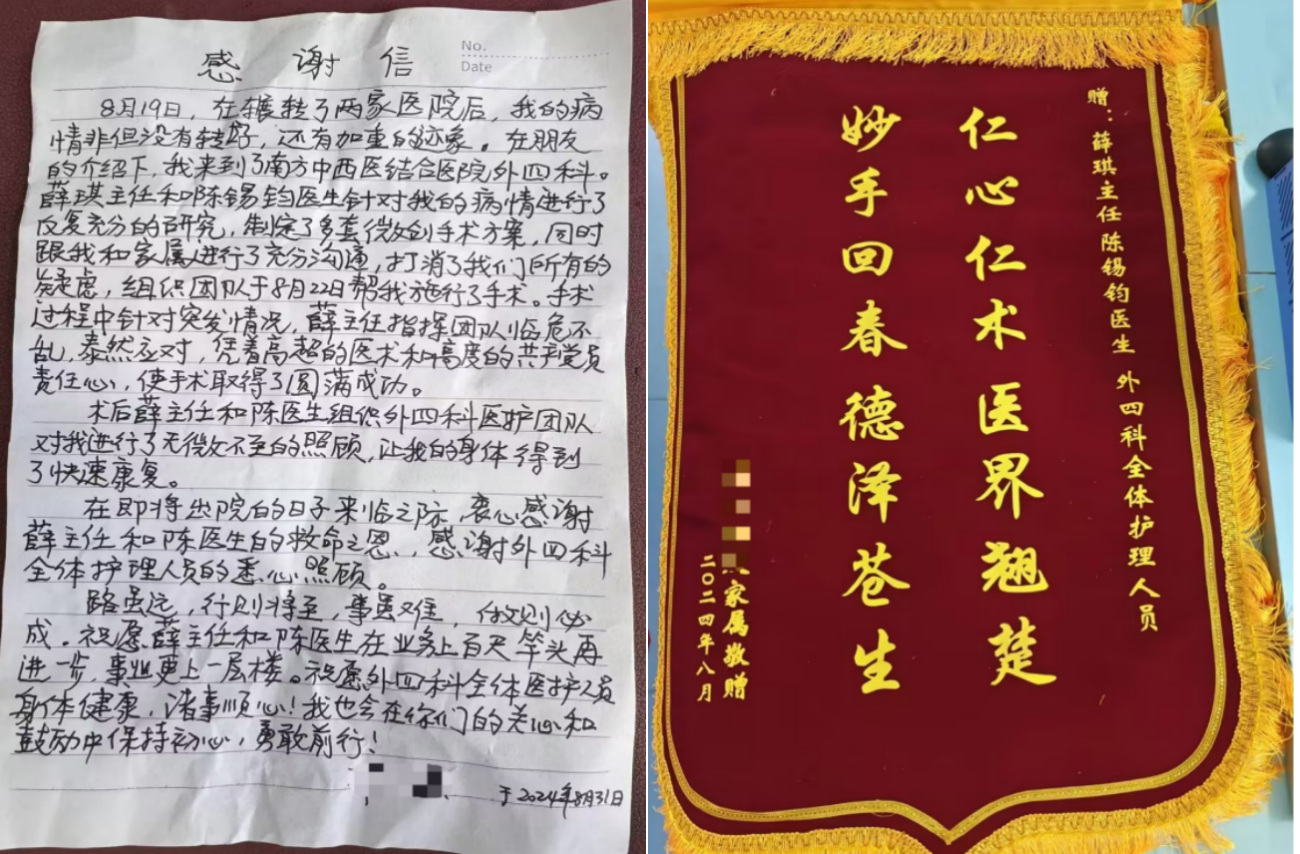 感谢信
No.
Date
8月19日,在辗转了两家医院后,我的病
情非但没有转好,还有加重的迹象。在朋友
的介绍下,我来到了南方中西医结合医院外四科。
薛琪主任和陈锡钧医生针对我的病情进行了
反复充分的研究,制定了多套微创手术方案,同时
跟我和家属进行了充分沟通,打消了我们所有的
疑虑,组织团队于8月22日帮我施行了手术。手术
过程中针对突发情况,薛主任指挥团队临危不
乱,泰然应对,凭着高超的医术和高度的共产党员
责任心,使手术取得了圆满成功。
术后薛主任和陈医生组织外四科医护团队
对我进行了无微不至的照顾,让我的身体得到
了快速康复。
在即将出院的日子来临之际,衷心感谢
薛主任和陈医生的救命之恩,感谢外四科
全体护理人员的悉心照顾。
路虽远,行则将至,事虽难,做则必
成。祝愿薛主任和陈医生在业务上百尺竿头再
进一步,事业更上一层楼。祝愿外四科全体医护人员
身体健康,诸事顺心!我也会在你们的关心和
鼓励中保持初心,勇敢前行!
于2024年8月31日
赠:薛琪主任陈锡钧医生 外四科全体护理人员
仁心仁术医界翘楚
妙手回春德泽苍生
家属敬赠
二〇二四年八月